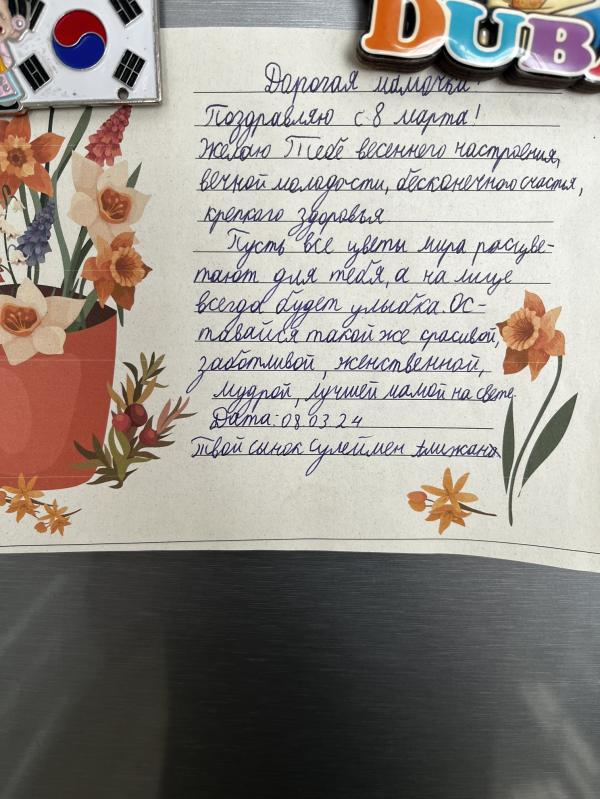 DUBA
Дорогая мамочка!
Поздравляю с 8 марта!
Желаю Тебе весеннего настроения,
вечной молодости, бесконечного счастья,
крепкого здоровья
Пусть все цветы мира расцве-
тают для тебя, а на лице
всегда будет улыбка. Ос-
тавайся такой же красивой,
заботливой, женственной,
мудрой, лучшей мамой на свете.
Дата: 08.03.24
Твой сынок Сулеймен Алижан